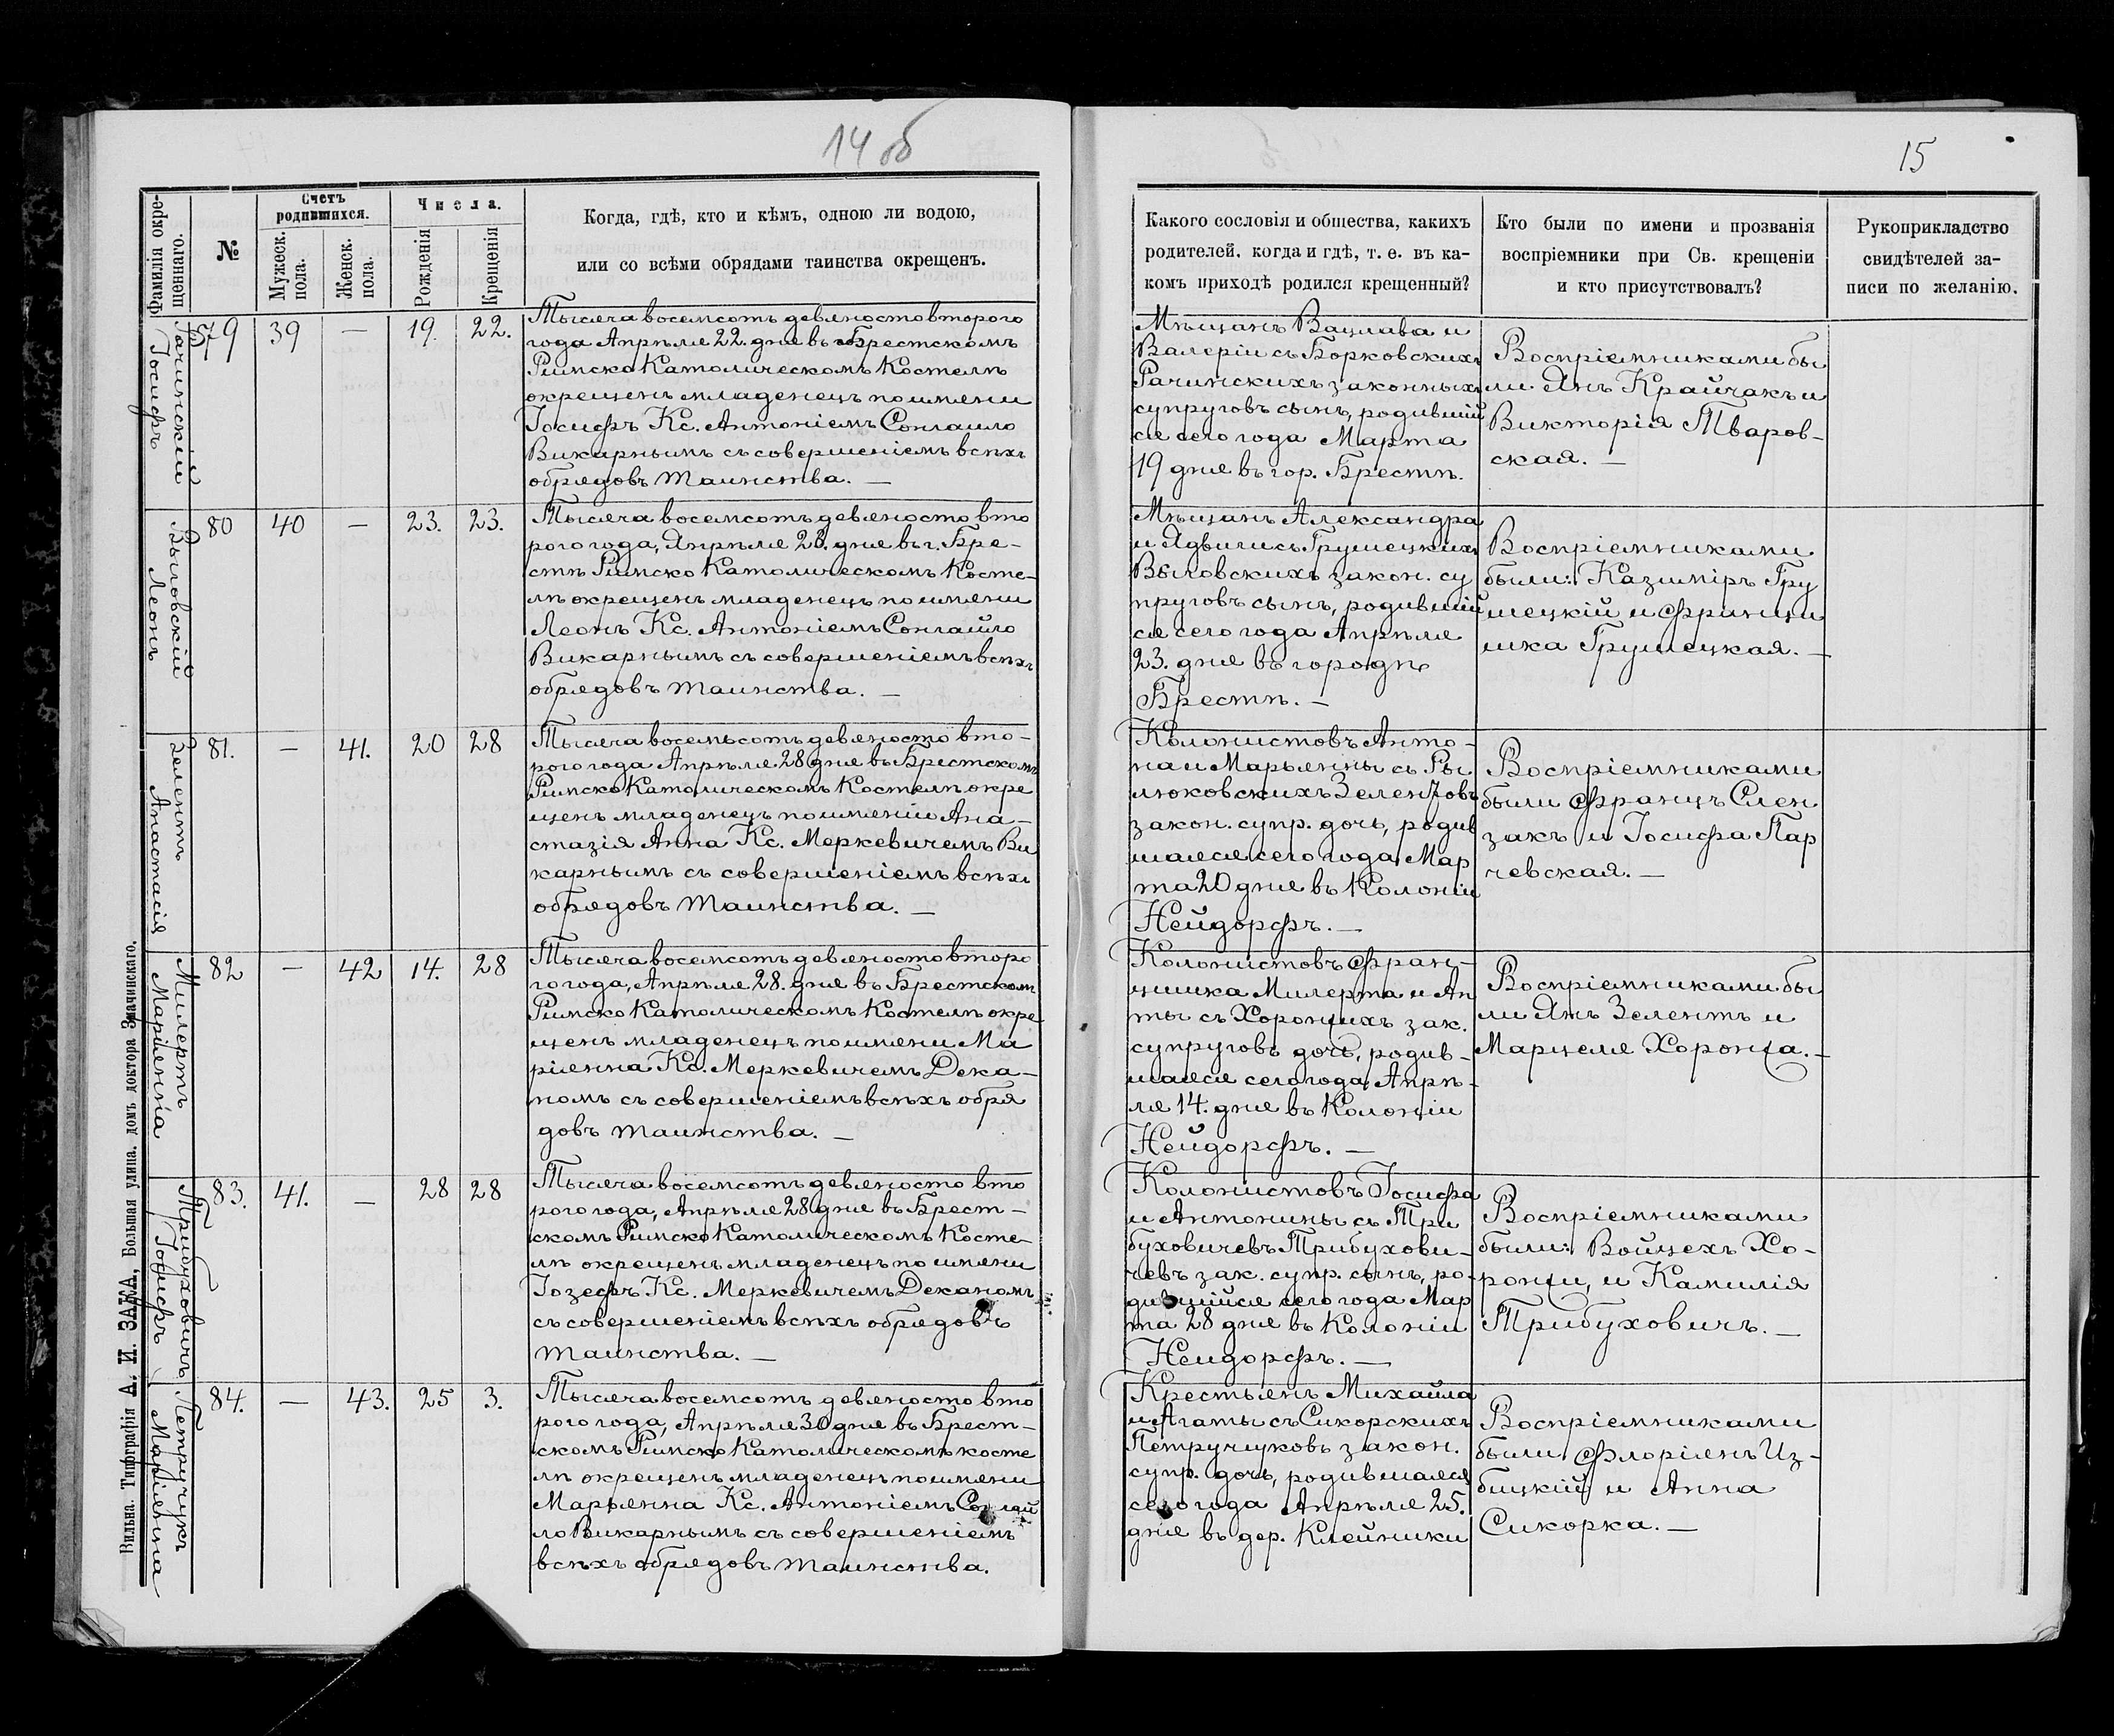 14 об
15
Фамилія окре-
щеннаго.
№
Счетъ
родившихся.
Мужеск.
пола.
Женск.
пола.
Числа.
Рожденія
Крещенія
Когда, гдѣ, кто и кѣмъ, одною ли водою,
или со всѣми обрядами таинства окрещенъ.
Какого сословія и общества, какихъ
родителей, когда и гдѣ, т. е. въ ка-
комъ приходѣ родился крещенный?
Кто были по имени и прозванія
воспріемники при Св. крещеніи
и кто присутствовалъ?
Рукоприкладство
свидѣтелей за-
писи по желанію.
Рачинскій
Іосифъ
79
39
—
19.
22.
Тысяча восемсотъ девяносто второго
года Апрѣля 22. дня въ Брестскомъ
Римско Католическомъ Костелѣ
окрещенъ младенецъ по имени
Іосифъ Кс. Антоніемъ Сонгаило
Викарнымъ съ совершеніемъ всѣхъ
обрядовъ таинства. —
Мѣщанъ Вацлава и
Валеріи съ Борковскихъ
Рачинскихъ законныхъ
супруговъ сынъ, родившій
ся сего года Марта
19 дня въ гор. Брестѣ.
Воспріемниками бы
ли Янъ Крайчакъ и
Викторія Тваров-
ская. —
Выговскій
Леонъ
80
40
—
23.
23.
Тысяча восемсотъ девяносто вто
рого года, Апрѣля 23. дня въ г. Бре-
стѣ Римско Католическомъ Косте-
лѣ окрещенъ младенецъ по имени
Леонъ Кс. Антоніемъ Сонгайло
Викарнымъ съ совершеніемъ всѣхъ
обрядовъ таинства. —
Мѣщанъ Александра
и Ядвиги съ Грушецкихъ
Выговскихъ закон. су
пруговъ сынъ, родившій
ся сего года Апрѣля
23. дня въ городѣ
Брестѣ. —
Воспріемниками
были: Казимиръ Гру
шецкій и Францы
шка Грушецкая. —
Зелентъ
Анастасія
81.
—
41.
20
28
Тысяча восемьсотъ девяносто вто-
рого года Апрѣля 28 дня въ Брестскомъ
Римско Католическомъ Костелѣ окре
щенъ младенецъ по имени Ана-
стазія Анна Кс. Меркевичемъ Ви
карнымъ съ совершеніемъ всѣхъ
обрядовъ таинства. —
Колонистовъ Анто-
на и Марьянны съ Ры
люковскихъ Зелентовъ
закон. супр. дочь, родив
шаяся сего года Мар
та 20 дня въ Колоніи
Нейдорфъ. —
Воспріемниками
были Францъ Слен
закъ и Іосифа Пар
чевская. —
Милертъ
Маріянна
82
—
42
14.
28
Тысяча восемсотъ девяносто второ
го года, Апрѣля 28. дня въ Брестском
Римско Католическомъ Костелѣ окре
щенъ младенецъ по имени Ма
ріянна Кс. Меркевичемъ Дека-
номъ съ совершеніемъ всѣхъ обря
довъ таинства. —
Колонистовъ Фран-
цишка Милерта и Ан
ны съ Хоронжихъ зак.
супруговъ дочь, родив-
шаяся сего года Апрѣ-
ля 14. дня въ Колоніи
Нейдорфъ. —
Воспріемниками бы
ли Янъ Зелентъ и
Марцеля Хоронжа. —
Трибуховичъ
Іосифъ
83.
41.
—
28
28
Тысяча восемсотъ девяносто вто
рого года, Апрѣля 28 дня въ Брест-
скомъ Римско Католическомъ Косте-
лѣ окрещенъ младенецъ по имени
Іозефъ Кс. Меркевичемъ Деканомъ
съ совершеніемъ всѣхъ обрядовъ
таинства. —
Колонистовъ Іосифа
и Антонины съ Три
буховичевъ Трибухови-
чевъ зак. супр. сынъ, ро-
дившійся сего года Мар
та 28 дня въ Колоніи
Нейдорфъ. —
Воспріемниками
были: Войцехъ Хо-
ронжи, и Камилія
Трибуховичъ. —
Петручукъ
Маріянна
84.
—
43.
25
3.
Тысяча восемсотъ девяносто вто
рого года, Апрѣля 30 дня въ Брест-
скомъ Римско Католическомъ косте
лѣ окрещенъ младенецъ по имени
Марьянна Кс. Антоніемъ Сонгай
ло Викарнымъ съ совершеніемъ
всѣхъ обрядовъ таинства.
Крестьянъ Михаила
и Агаты съ Сикорскихъ
Петручуковъ закон.
супр. дочь, родившаяся
сего года Апрѣля 25.
дня въ дер. Клейники
Воспріемниками
были Флоріянъ Из-
бицкій и Анна
Сикорка. —
Вильна. Типографія А. И. ЗАКА, Большая улица, домъ доктора Змачинскаго.